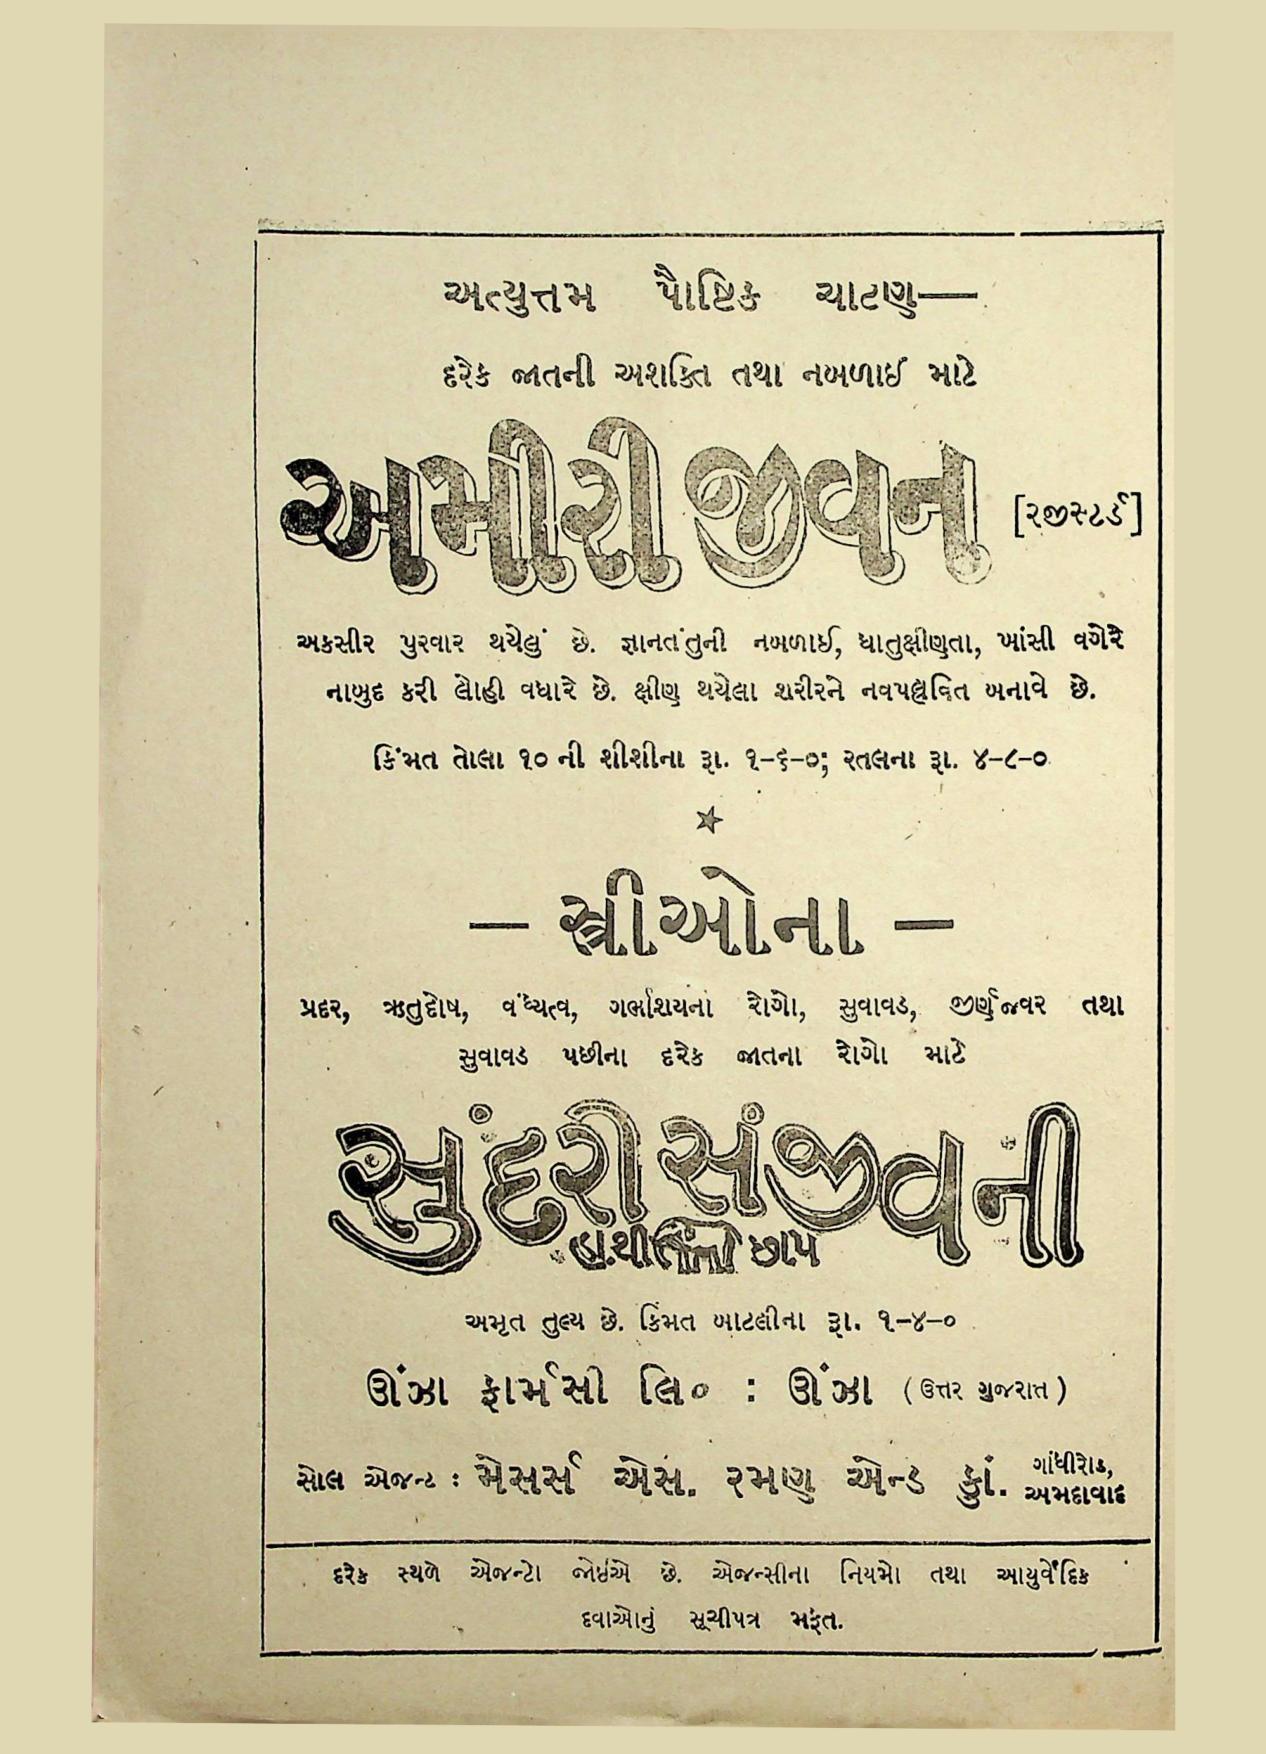 અત્યુત્તમ પૌષ્ટિક ચાટણ—
દરેક જાતની અશક્તિ તથા નબળાઈ માટે
અમીરી જીવન [રજીસ્ટર્ડ]
અકસીર પુરવાર થયેલું છે. જ્ઞાનતંતુની નબળાઈ, ધાતુક્ષીણતા, ખાંસી વગેરે
નાબુદ કરી લોહી વધારે છે. ક્ષીણ થયેલા શરીરને નવપલ્લવિત બનાવે છે.
કિંમત તોલા ૧૦ ની શીશીના રૂા. ૧-૬-૦; રતલના રૂા. ૪-૮-૦
— સ્ત્રીઓના —
પ્રદર, ઋતુદોષ, વંધ્યત્વ, ગર્ભાશયના રોગો, સુવાવડ, જીર્ણજ્વર તથા
સુવાવડ પછીના દરેક જાતના રોગો માટે
સુંદરી સંજીવની
હાથીની છાપ
અમૃત તુલ્ય છે. કિંમત બાટલીના રૂા. ૧-૪-૦
ઊંઝા ફાર્મસી લિ૦ : ઊંઝા (ઉત્તર ગુજરાત)
સોલ એજન્ટ : મેસર્સ એસ. રમણ એન્ડ કાું. ગાંધીરોડ, અમદાવાદ
દરેક સ્થળે એજન્ટો જોઇએ છે. એજન્સીના નિયમો તથા આયુર્વેદિક
દવાઓનું સૂચીપત્ર મફત.